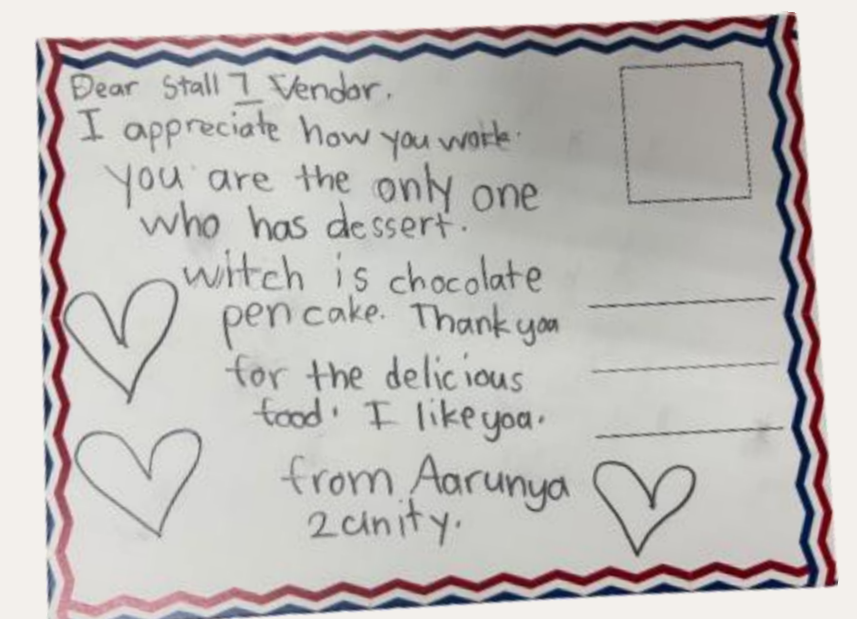 Dear Stall 7 Vendor.
I appreciate how you work.
you are the only one
who has dessert.
witch is chocolate
pencake. Thank you
for the delicious
food. I like you.
from Aarunya
2 unity.